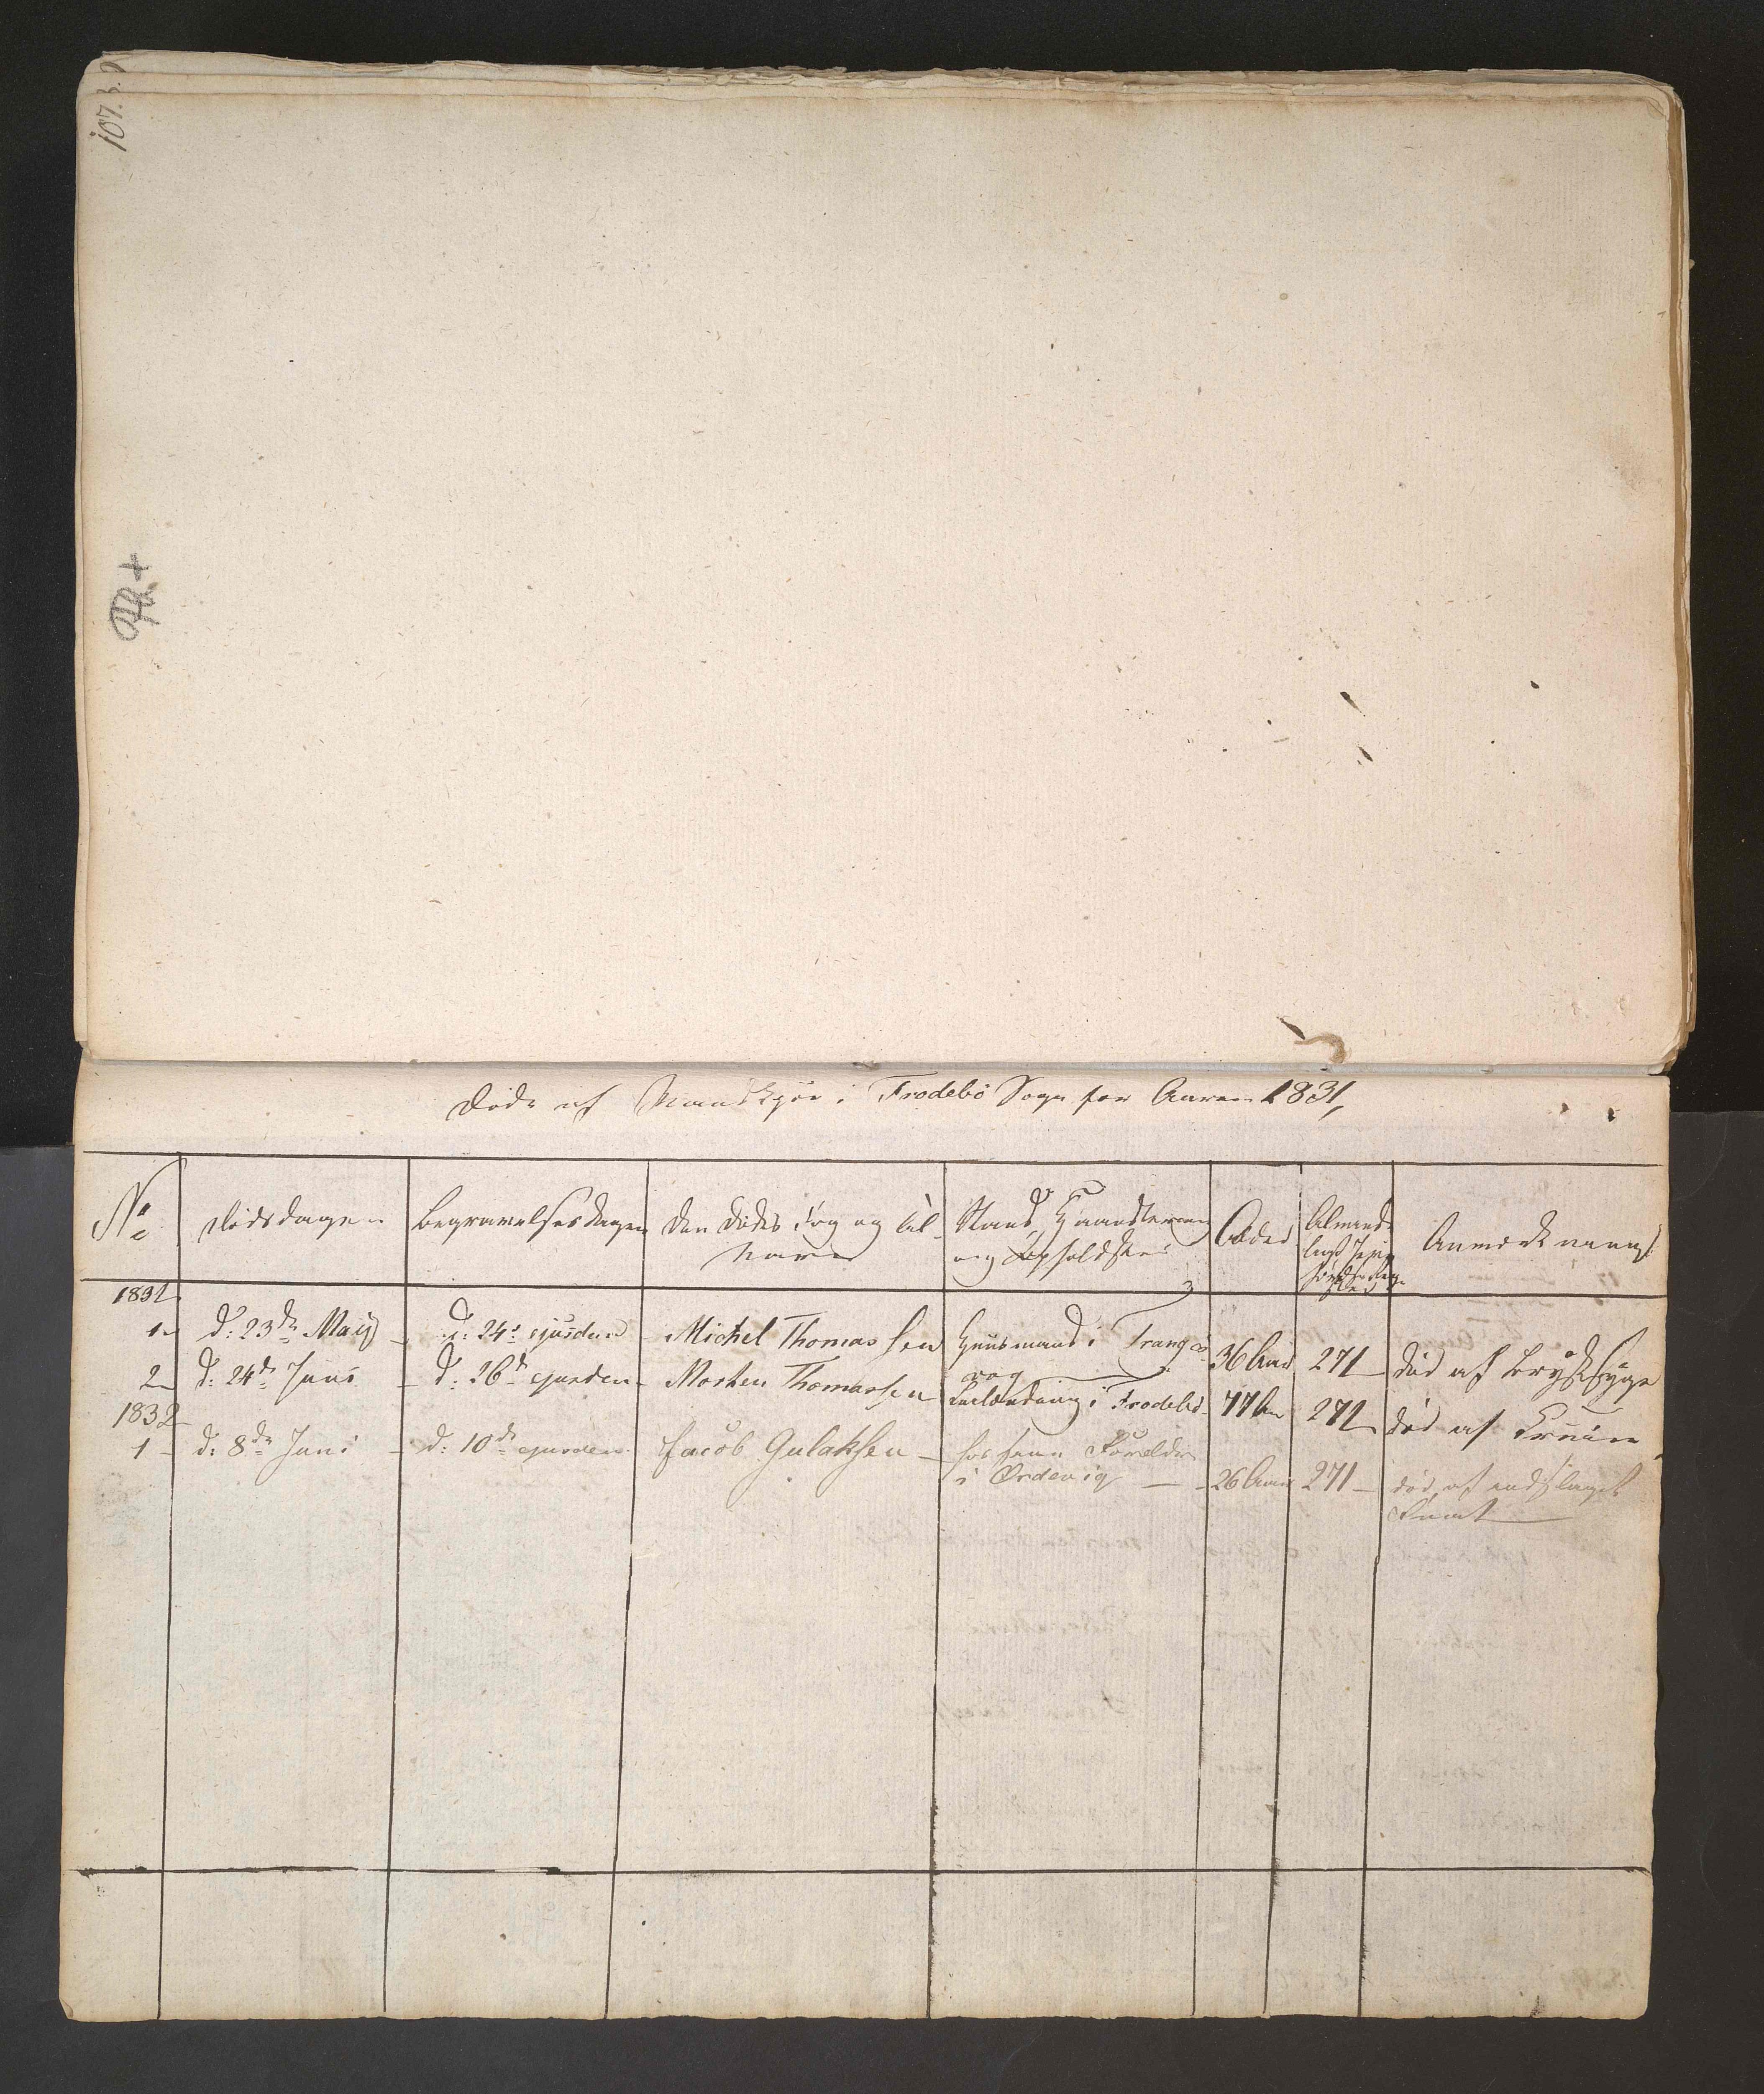 107. b.
Døde af Mandkjøn i Frodebø Sogn for Aaren 1831,
No
Dødsdagen
Begravelsesdagen
Den Dødes For og Til-
navn
Stand, Haandtering
og Opholdsted
Alder
Almind-
Anmærkning
1831
1
d: 23de Maij
d: 24de ejusdem
Michel Thomassen
Huusmand i Trangis-
vog
36 Aar
271
død af Brystsyge
2
d: 24de Juni
d: 26de ejusdem
Morten Thomassen
i Frodebø
77
272
død af
1832
1
d: 8de Juni
d: 10de ejusdem
Jacob Gulaksen
hos sine Forældre
i Ørdevig
26 Aar
271
død af